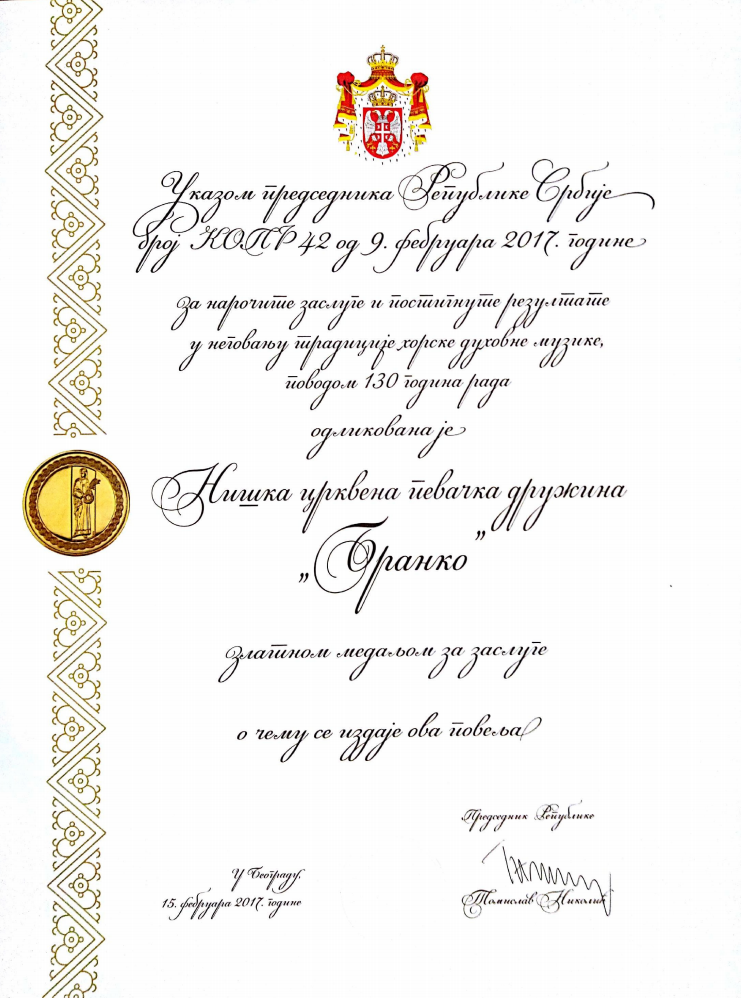 Указом председника Републике Србије
број КОПР 42 од 9. фебруара 2017. године
за нарочите заслуге и постигнуте резултате
у неговању традиције хорске духовне музике,
поводом 130 година рада
одликована је
Нишка црквена певачка дружина
„Бранко”
златном медаљом за заслуге
о чему се издаје ова повеља
Председник Републике
У Београду,
15. фебруара 2017. године
Томислав Николић